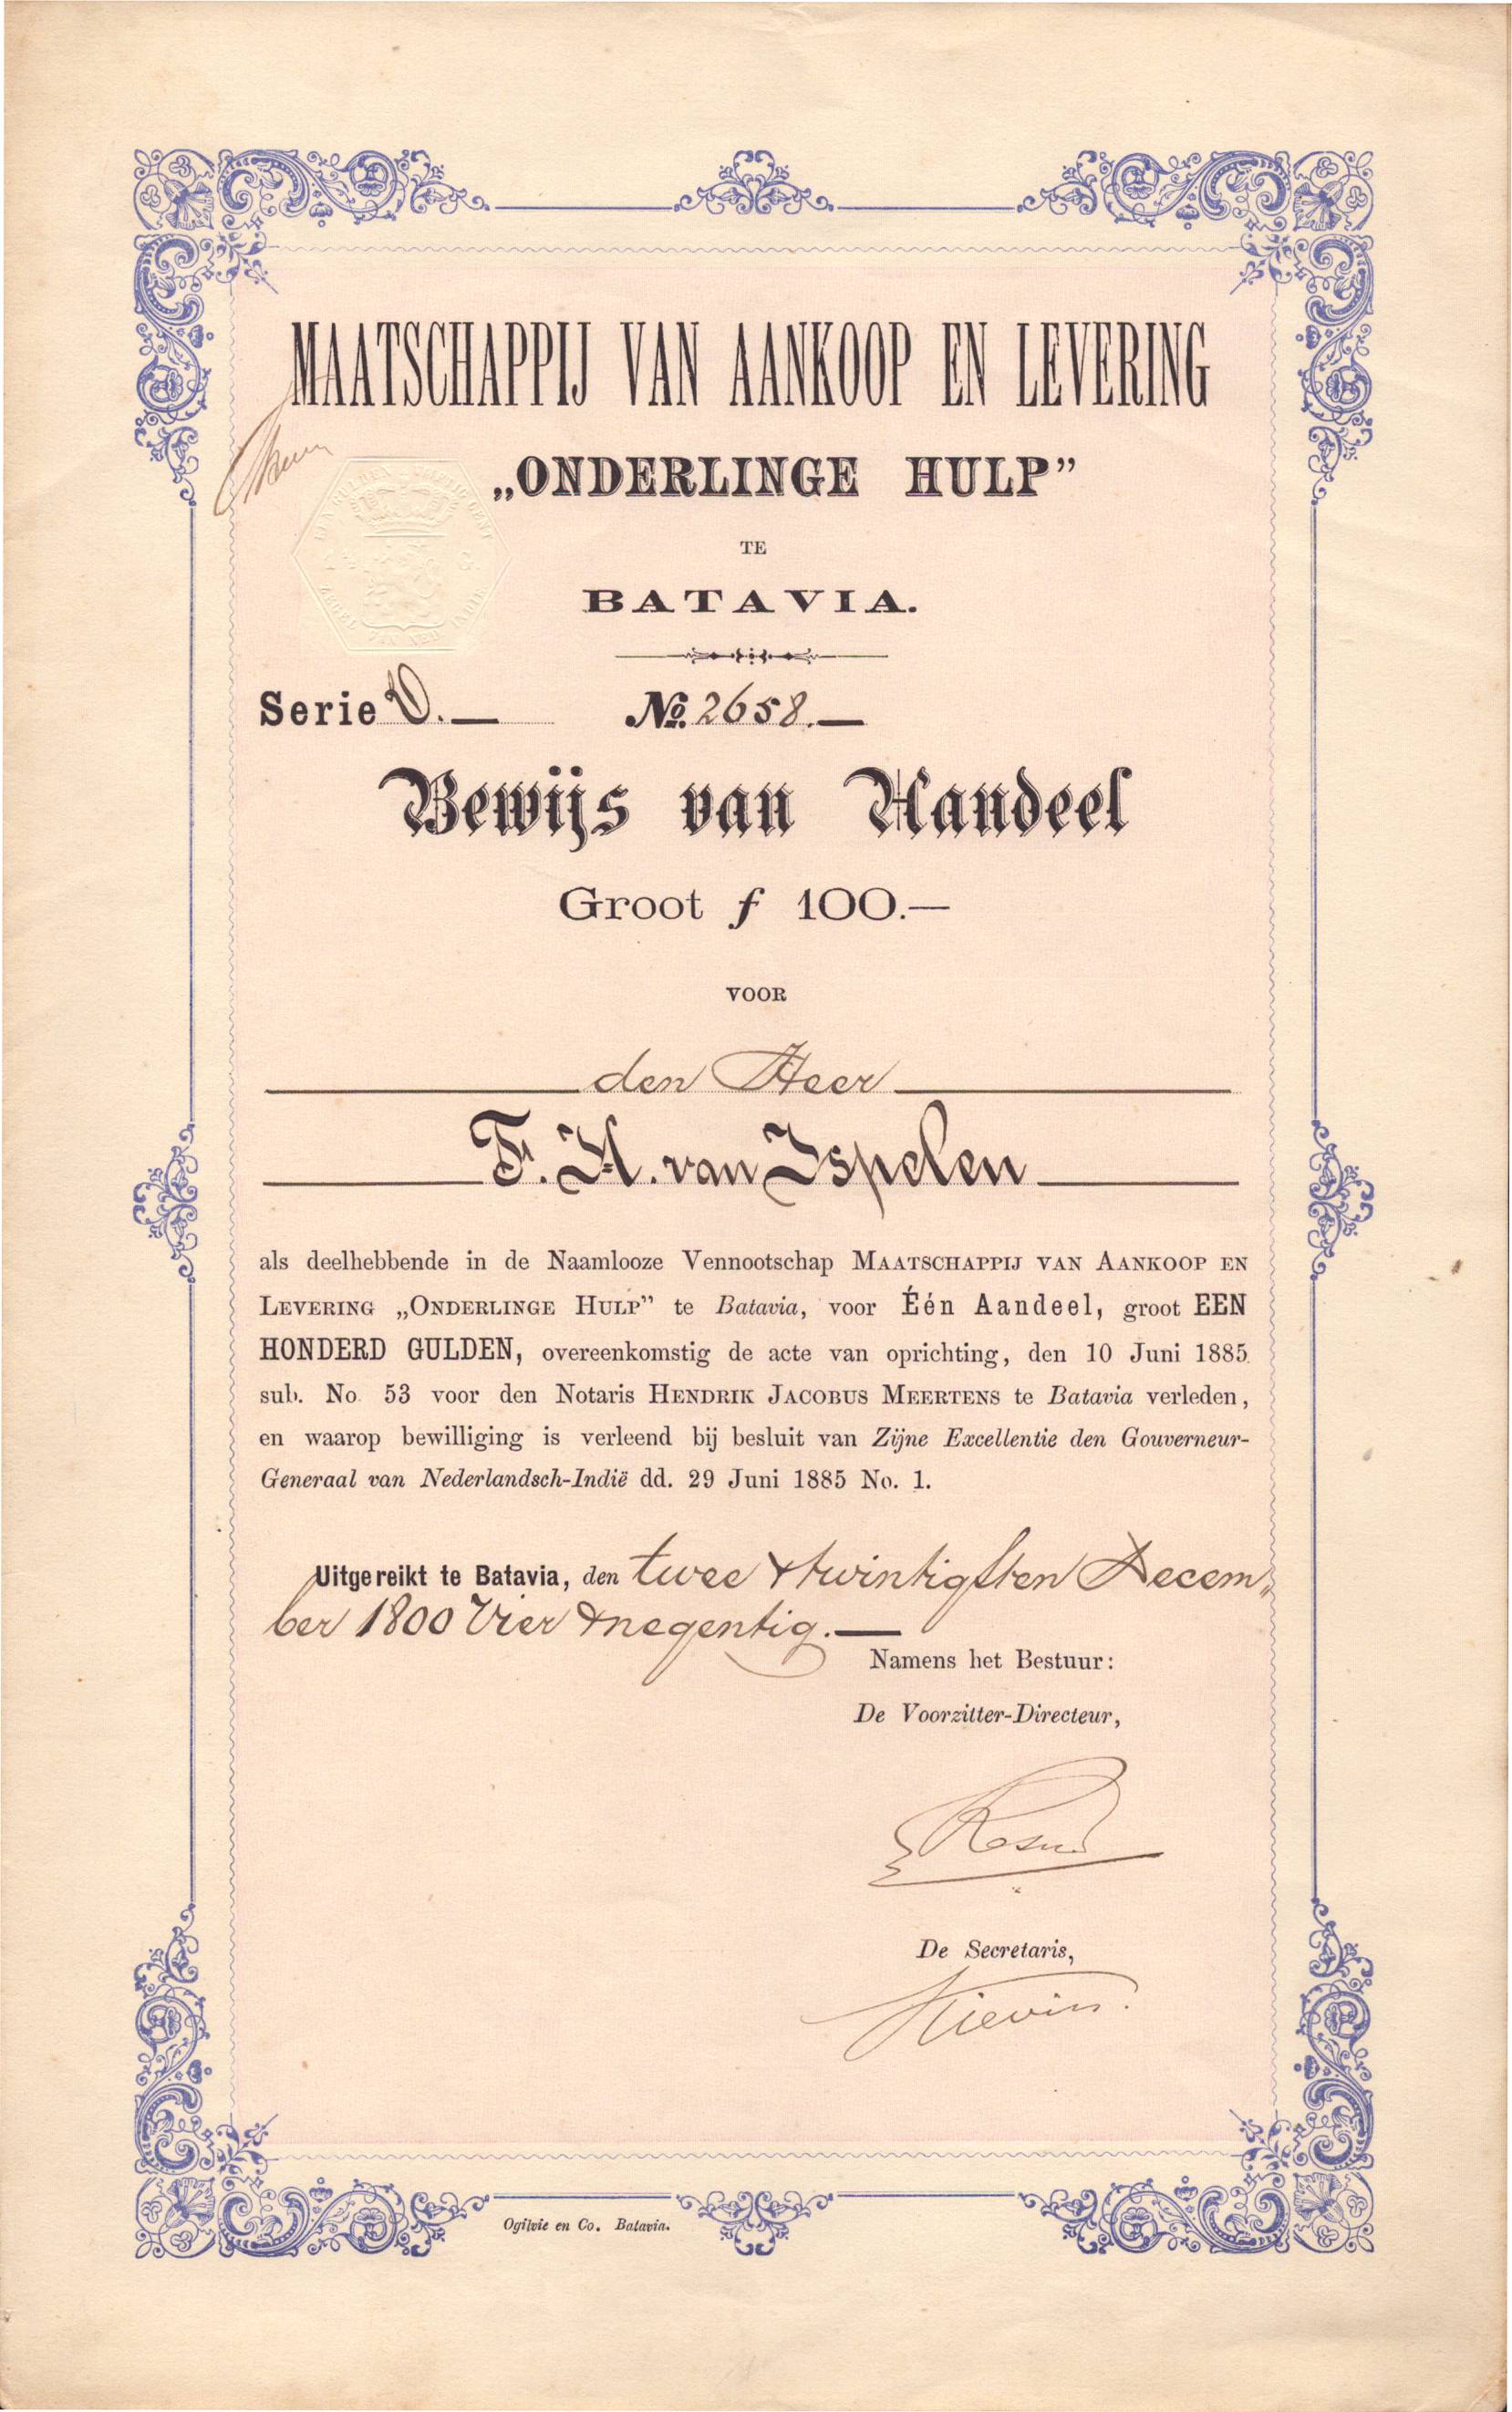 MAATSCHAPPIJ VAN AANKOOP EN LEVERING
„ONDERLINGE HULP”
TE
BATAVIA.
Serie D.— No. 2658.—
Bewijs van Aandeel
Groot ƒ 100.—
VOOR
den Heer
F. H. van Ispelen
als deelhebbende in de Naamlooze Vennootschap MAATSCHAPPIJ VAN AANKOOP EN
LEVERING „ONDERLINGE HULP” te Batavia, voor Één Aandeel, groot EEN
HONDERD GULDEN, overeenkomstig de acte van oprichting, den 10 Juni 1885
sub. No. 53 voor den Notaris HENDRIK JACOBUS MEERTENS te Batavia verleden,
en waarop bewilliging is verleend bij besluit van Zijne Excellentie den Gouverneur-
Generaal van Nederlandsch-Indië dd. 29 Juni 1885 No. 1.
Uitgereikt te Batavia, den twee & twintigsten Decem„
ber 1800 Vier & negentig.—
Namens het Bestuur:
De Voorzitter-Directeur,
De Secretaris,
Ogilvie en Co. Batavia.